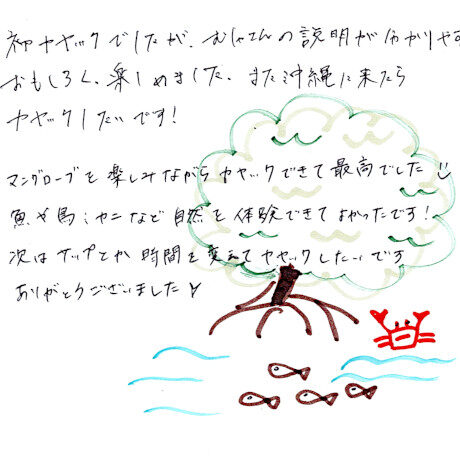 初カヤックでしたが、むしゃさんの説明が分かりやす
おもしろく、楽しめました。また沖縄に来たら
カヤックしたいです!
マングローブを楽しみながらカヤックできて最高でした
魚や鳥、カニなど自然を体験できてよかったです!
次はサップとか時間を変えてカヤックしたいです
ありがとうございました